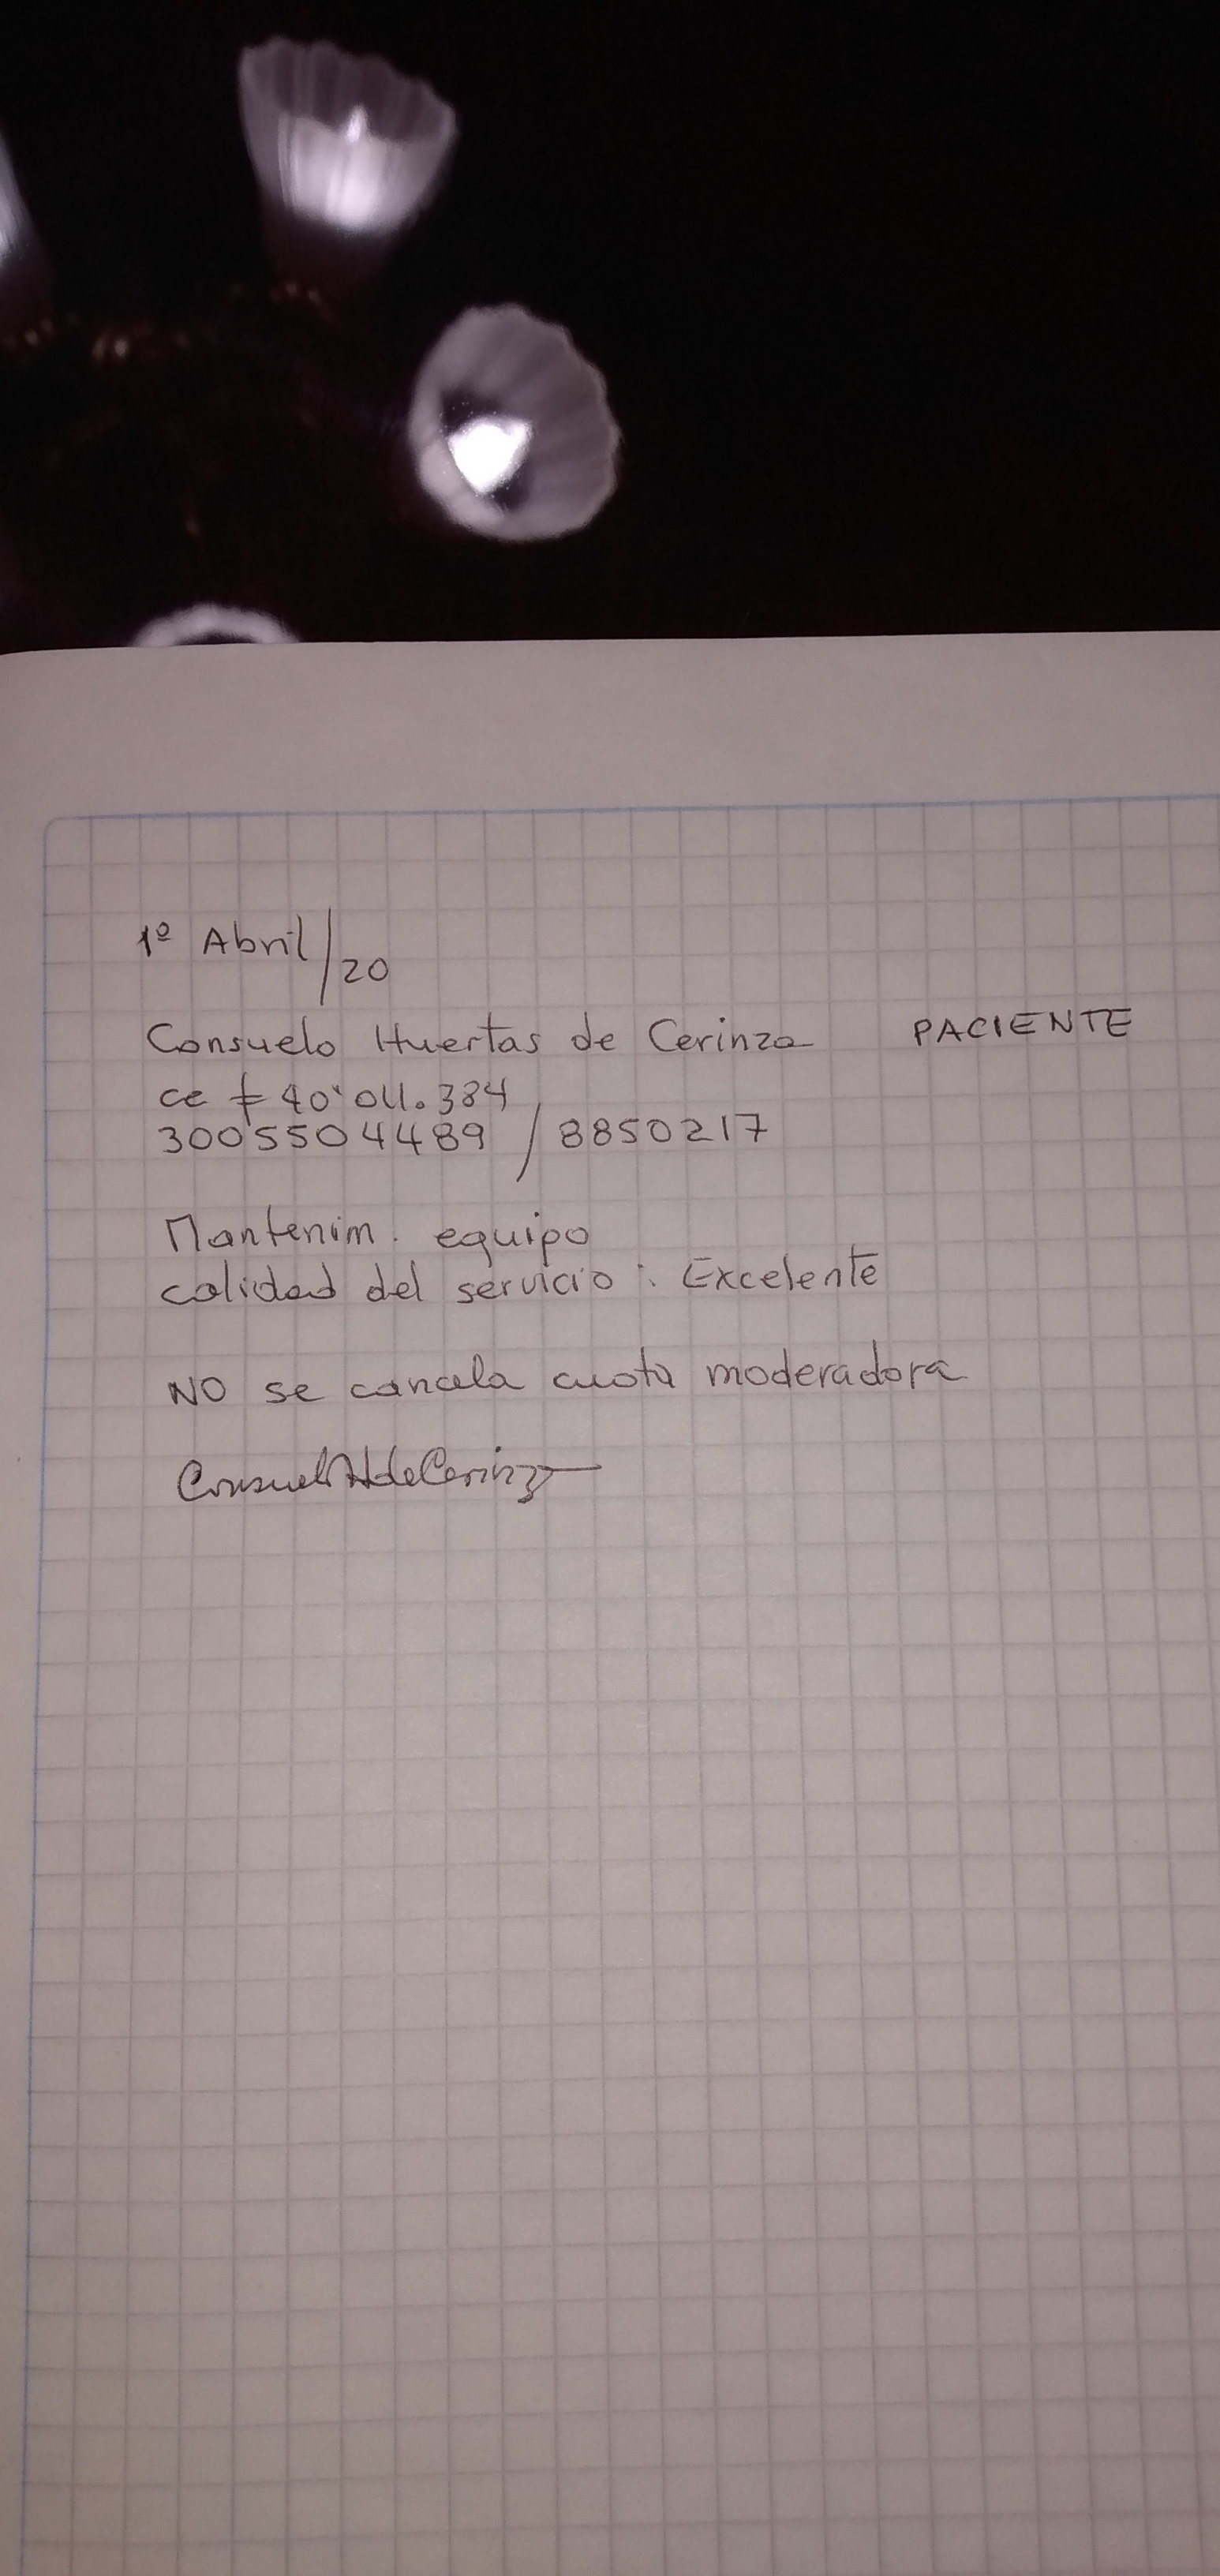 1º Abril/20
Consuelo Huertas de Cerinza PACIENTE
cc # 40'011.384
3005504489 / 8850217
Mantenim. equipo
calidad del servicio : Excelente
NO se cancela cuota moderadora
ConsueloHdeCerinza